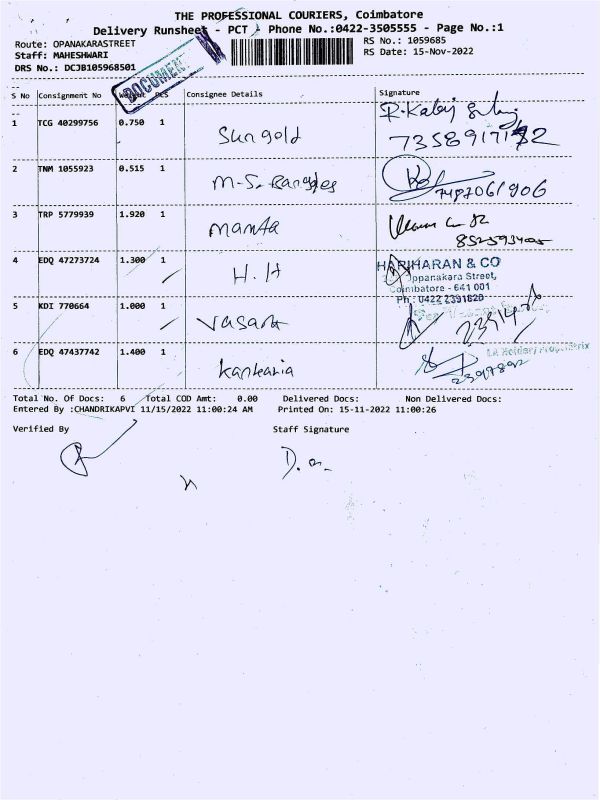 THE PROFESSIONAL COURIERS, Coimbatore
Delivery Runsheet - PCT / Phone No.:0422-3505555 - Page No.:1
Route: OPANAKARASTREET
RS No.: 1059685
Staff: MAHESHWARI
RS Date: 15-Nov-2022
DRS No.: DCJB105968501
DOCUMENT
S No Consignment No Weight PCS Consignee Details Signature
1 TCG 40299756 0.750 1 Sungold
2 TNM 1055923 0.515 1 M-S. Bangles
3 TRP 5779939 1.920 1 Mamta
4 EDQ 47273724 1.300 1 H.H
HARIHARAN & CO
Oppanakara Street,
Coimbatore - 641 001
Ph : 0422 2391820
5 KDI 770664 1.000 1 Vasant
6 EDQ 47437742 1.400 1 Kankaria
Total No. Of Docs: 6 Total COD Amt: 0.00 Delivered Docs: Non Delivered Docs:
Entered By :CHANDRIKAPVI 11/15/2022 11:00:24 AM Printed On: 15-11-2022 11:00:26
Verified By Staff Signature